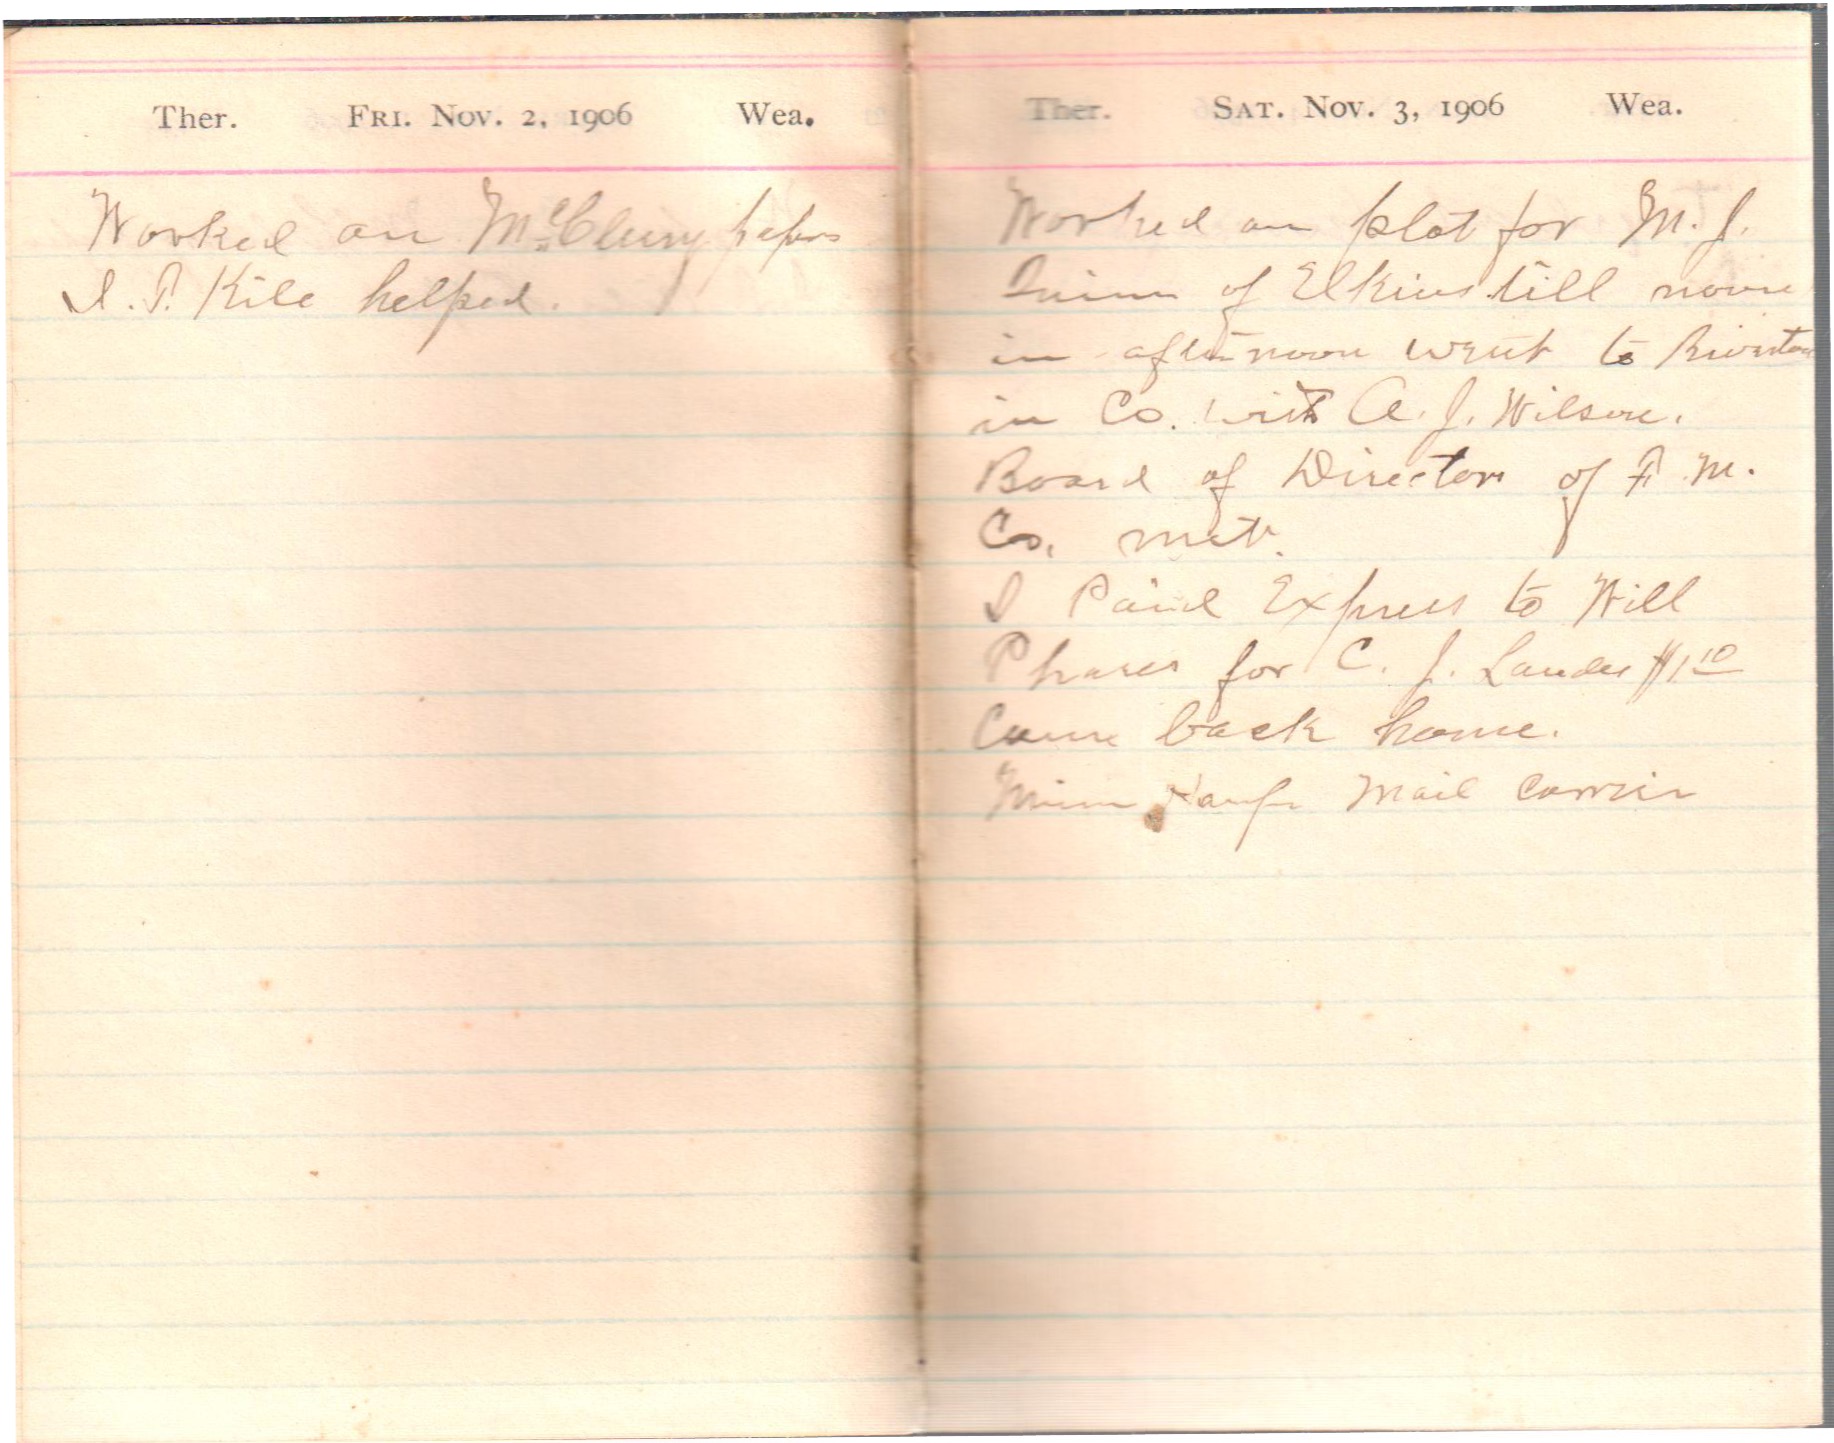 Ther. Fri. Nov. 2, 1906 Wea.
Worked on McClung papers
I. P. Kile helped.
Ther. Sat. Nov. 3, 1906 Wea.
Worked on plot for M. J.
of Elkins till noon
in afternoon went to Riverton
in Co. with A. J. Wilson.
Board of Directors of F. M.
Co. met.
I Paid Express to Will
Phares for C. J. Landes $1.10
Came back home.
Mail Carrier